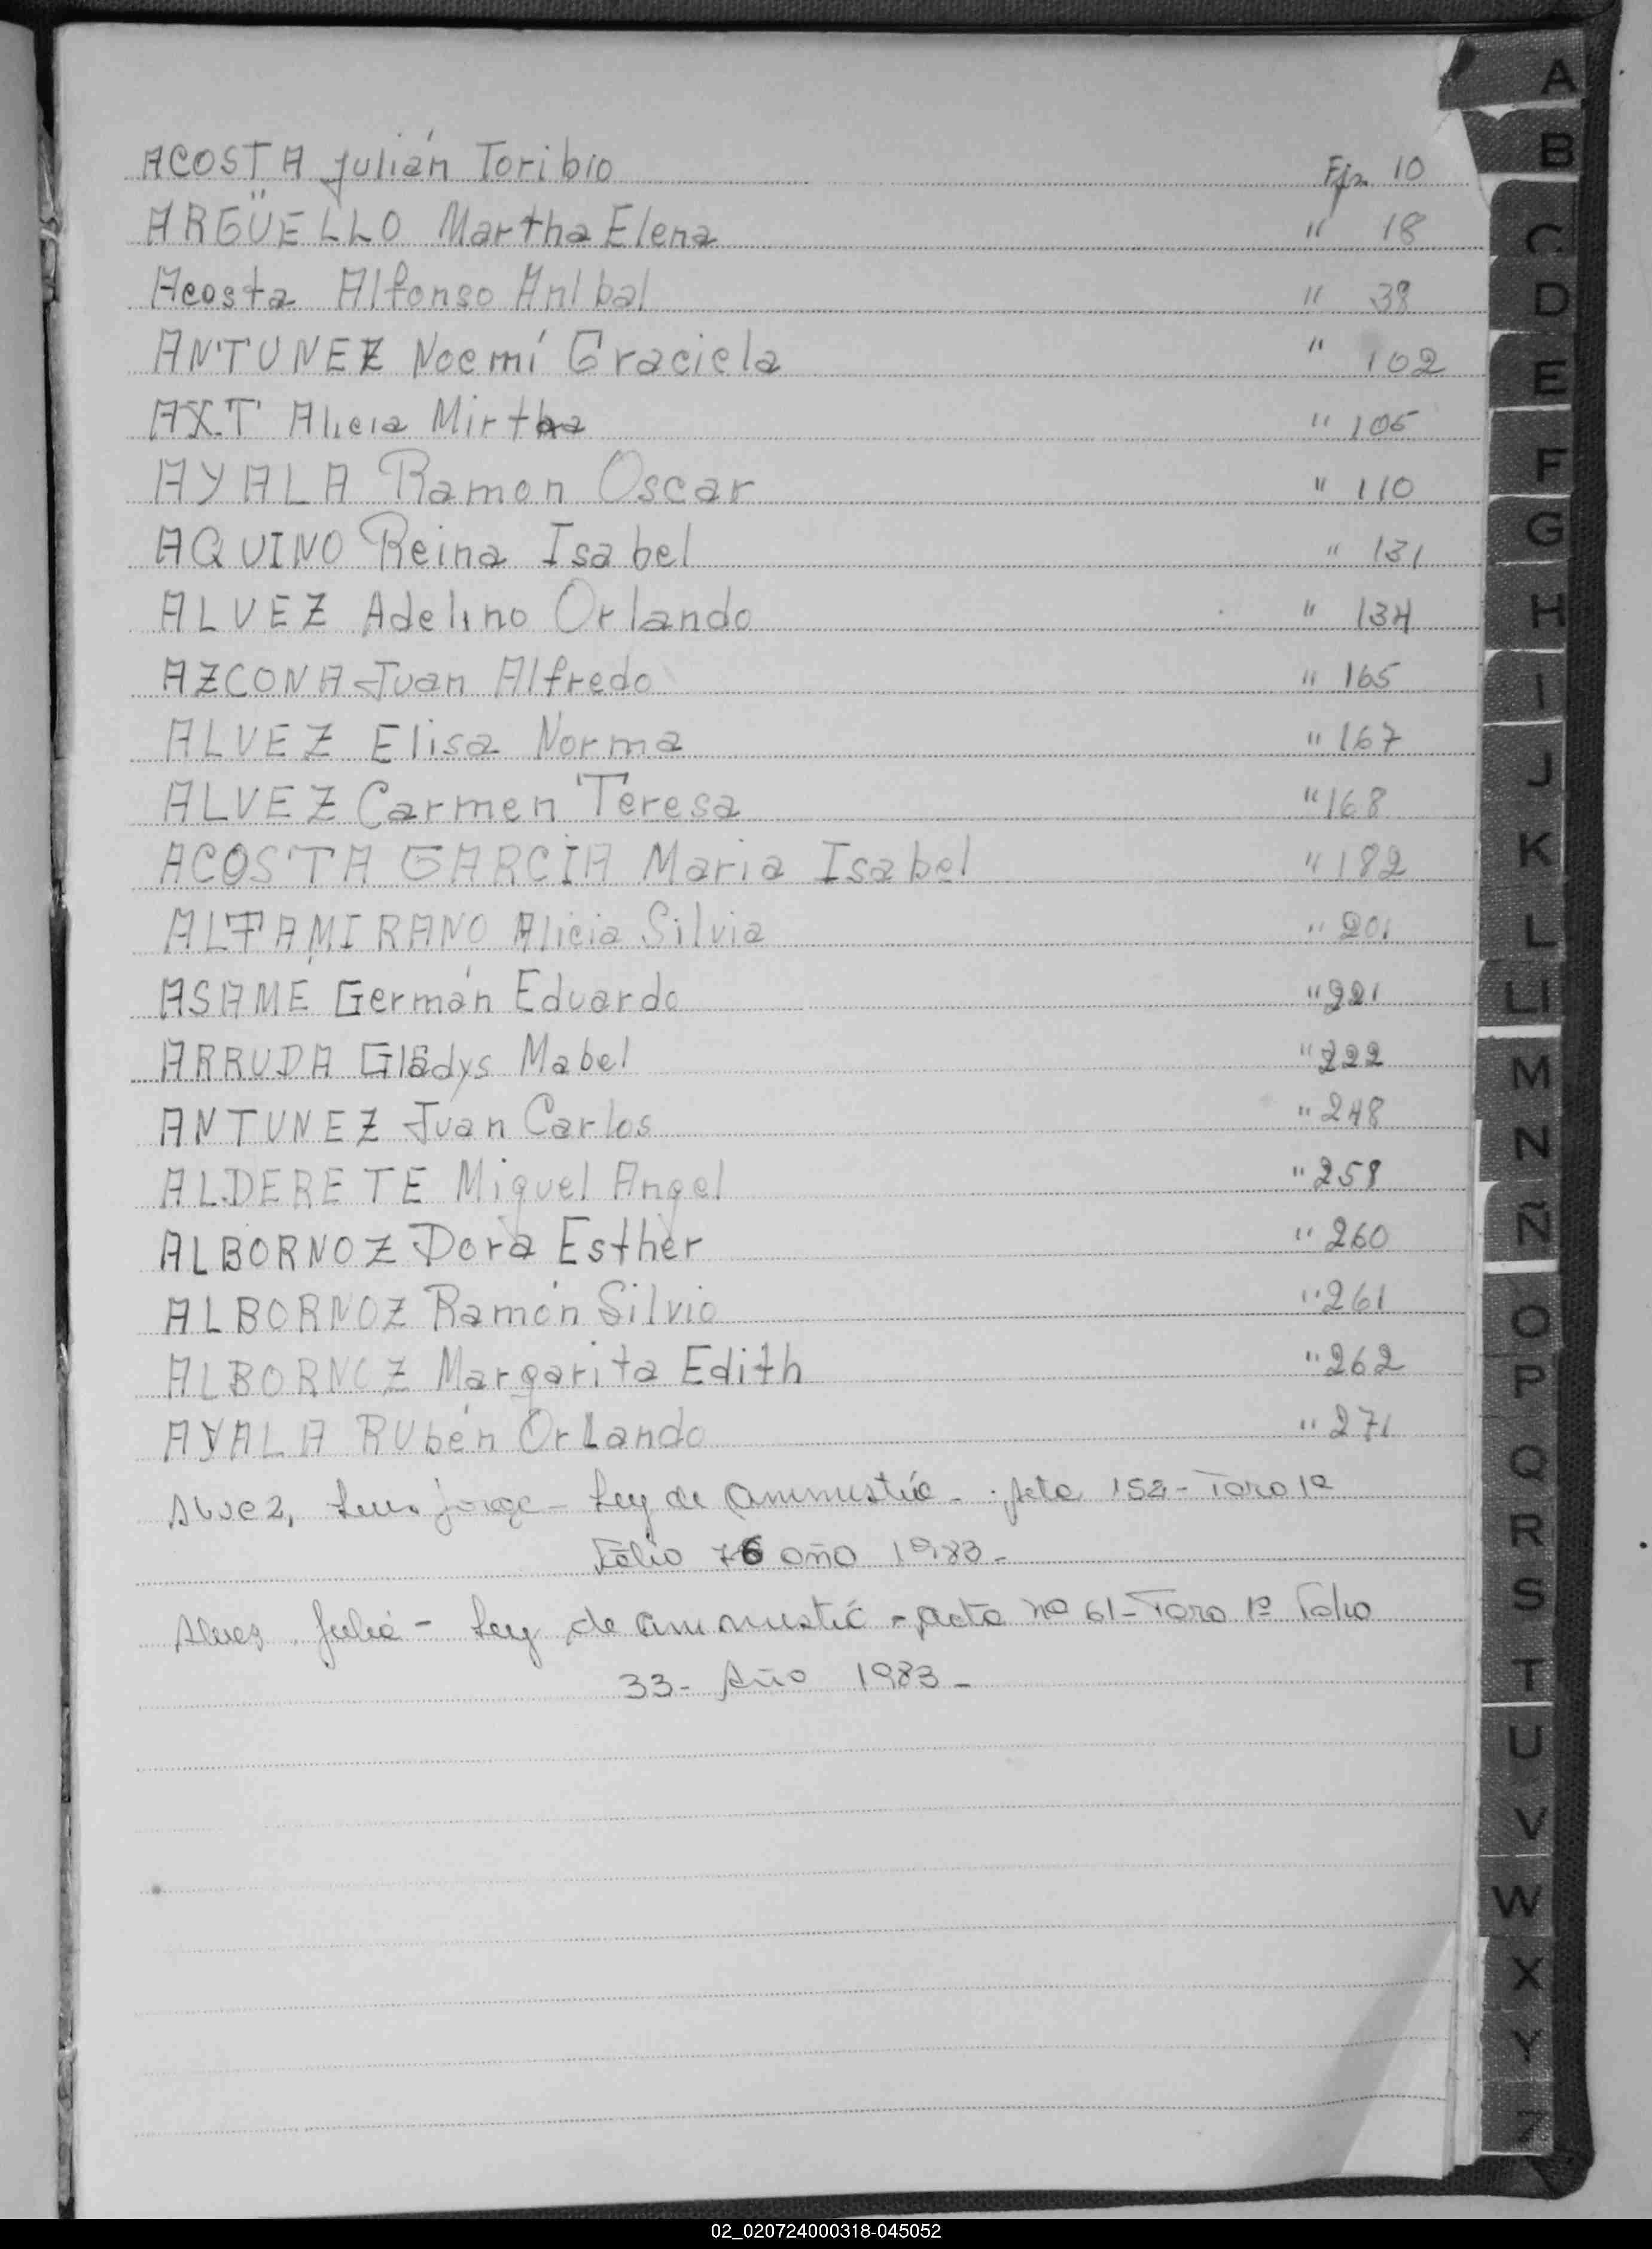 ACOSTA Julián Toribio Fja. 10
ARGÜELLO Martha Elena " 18
Acosta Alfonso Anibal " 38
ANTUNEZ Noemí Graciela " 102
AXT Alicia Mirtha " 105
AYALA Ramon Oscar " 110
AQUINO Reina Isabel " 131
ALVEZ Adelino Orlando " 134
AZCONA Juan Alfredo " 165
ALVEZ Elisa Norma " 167
ALVEZ Carmen Teresa " 168
ACOSTA GARCIA Maria Isabel " 182
ALTAMIRANO Alicia Silvia " 201
ASAMÉ Germán Eduardo " 221
ARRUDA Gladys Mabel " 222
ANTUNEZ Juan Carlos " 248
ALDERETE Miguel Angel " 258
ALBORNOZ Dora Esther " 260
ALBORNOZ Ramón Silvio " 261
ALBORNOZ Margarita Edith " 262
AYALA RUbén OrLando " 271
Alvez, Luis Jorge - Ley de ammustía - Acta 152 - Tomo 1º
Folio 76 año 1983 -
Alvez Julia - Ley de ammustia - acta nº 61 - Tomo 1º Folio
33 - Año 1983 -
A
B
C
D
E
F
G
H
I
J
K
L
Ll
M
N
Ñ
O
P
Q
R
S
T
U
V
W
X
Y
Z
02_020724000318-045052